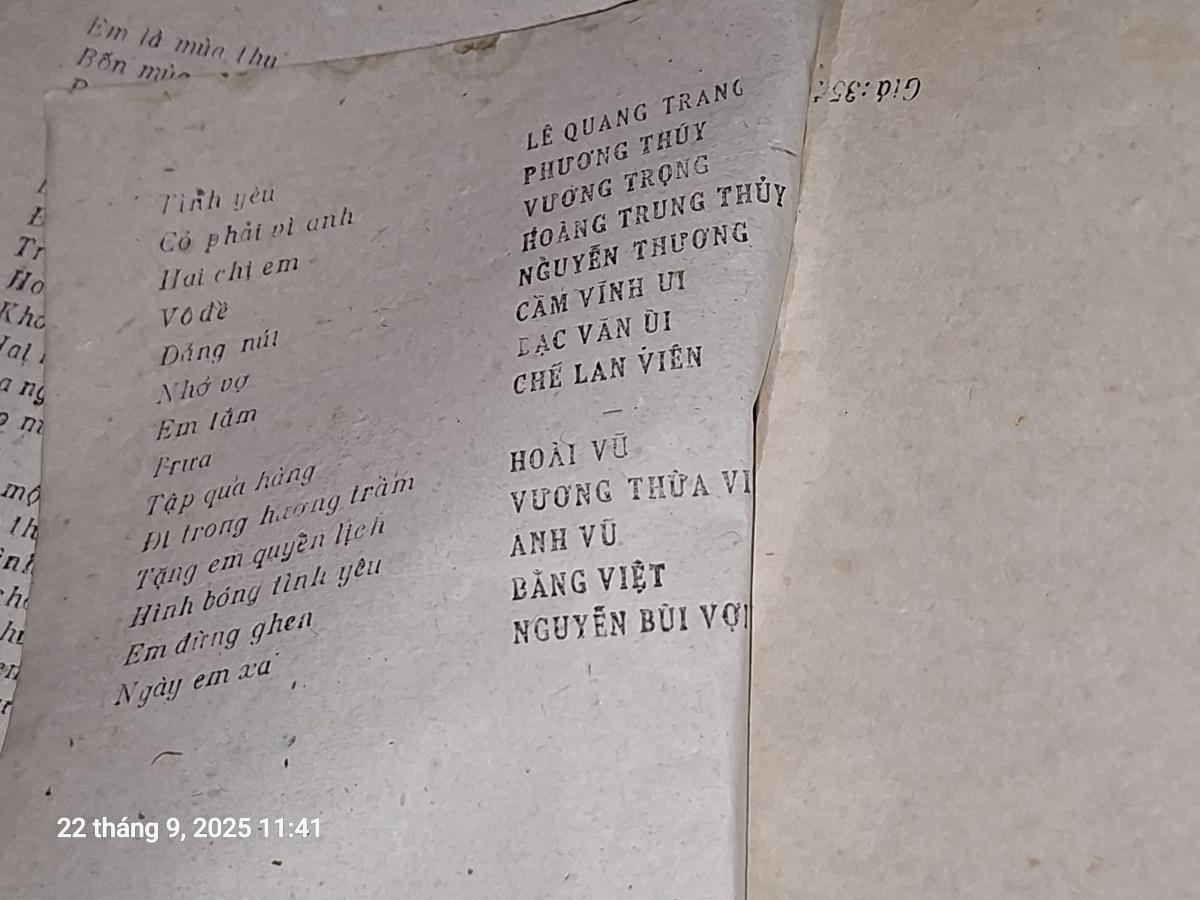 Em là mùa thu
Bốn mùa
Giá:35
Tình yêu LÊ QUANG TRANG
Có phải vì anh PHƯƠNG THÚY
Hai chị em VƯƠNG TRỌNG
Vô đề HOÀNG TRUNG THỦY
Dáng núi NGUYỄN THƯƠNG
Nhớ vợ CẦM VĨNH UI
Em tắm BẠC VĂN ÙI
Trưa CHẾ LAN VIÊN
Tập qua hàng —
Đi trong hương tràm HOÀI VŨ
Tặng em quyển lịch VƯƠNG THỪA VI
Hình bóng tình yêu ANH VŨ
Em đừng ghen BẰNG VIỆT
Ngày em xa NGUYỄN BÙI VỢI
22 tháng 9, 2025 11:41